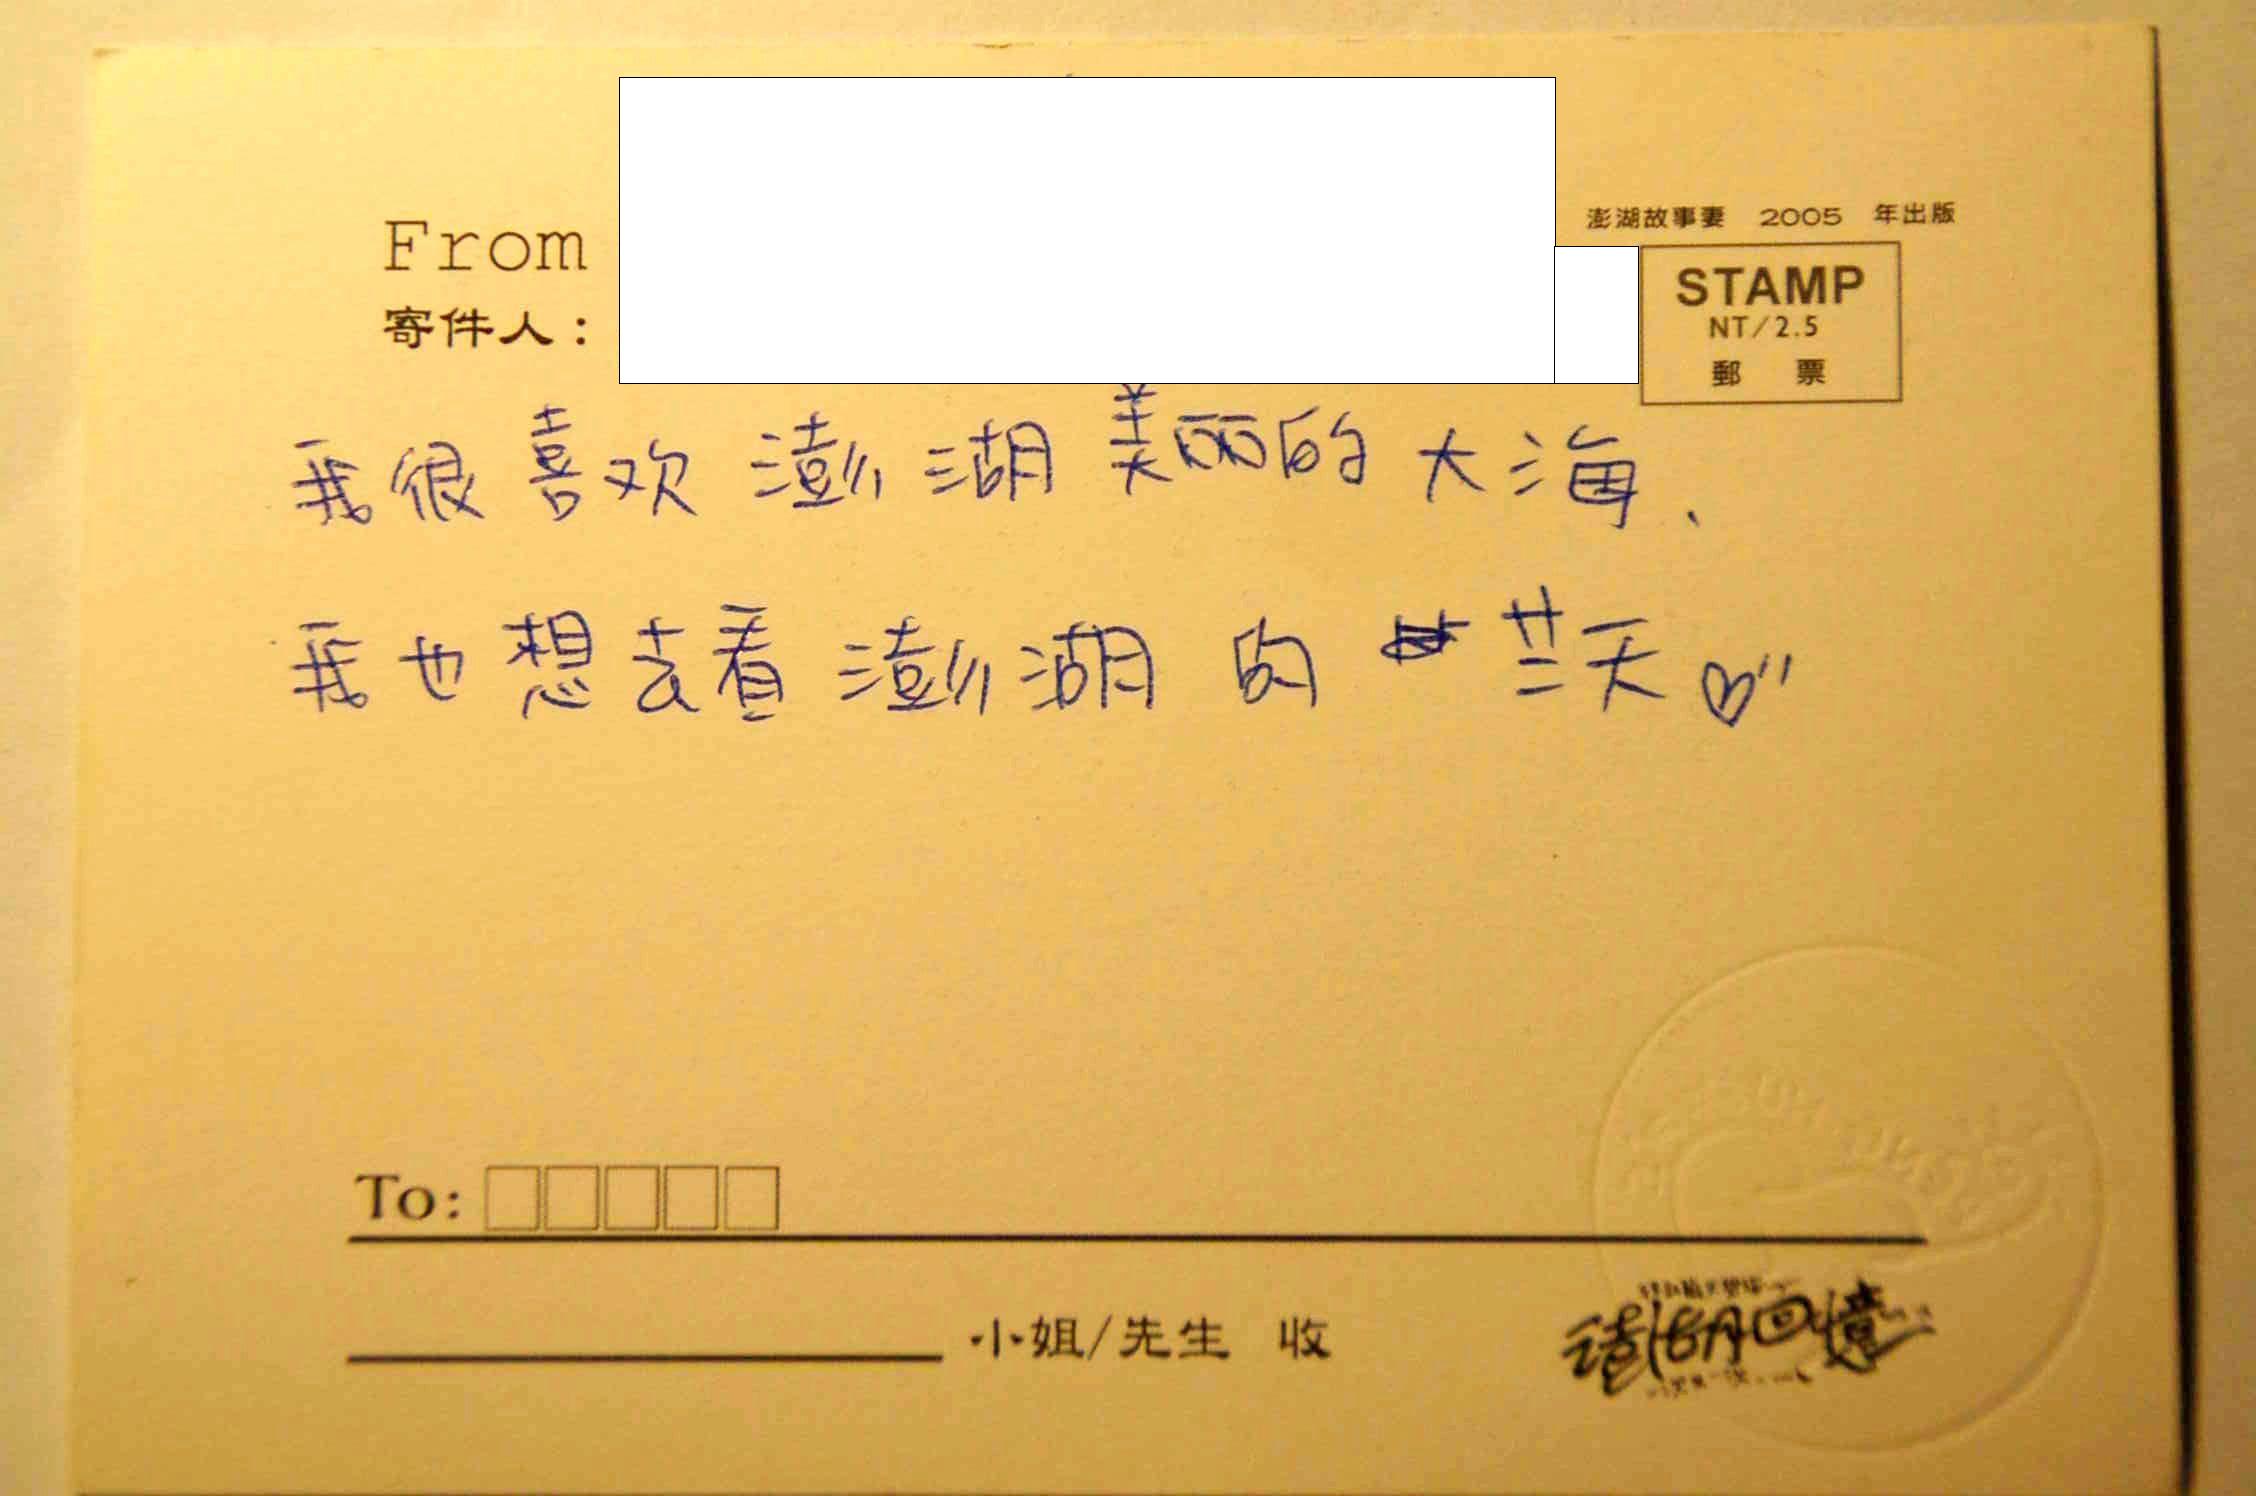 澎湖故事妻 2005 年出版
From
STAMP
NT/2.5
寄件人:
郵 票
我很喜欢澎湖美丽的大海、
我也想去看澎湖的 兰天♡"
To:
小姐/先生 收
澎湖回憶